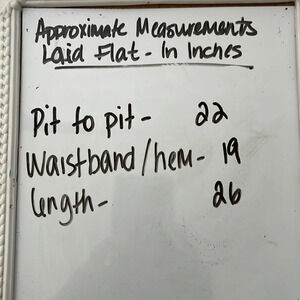 Approximate Measurements
Laid Flat - In Inches
Pit to pit - 22
Waistband/hem - 19
length - 26